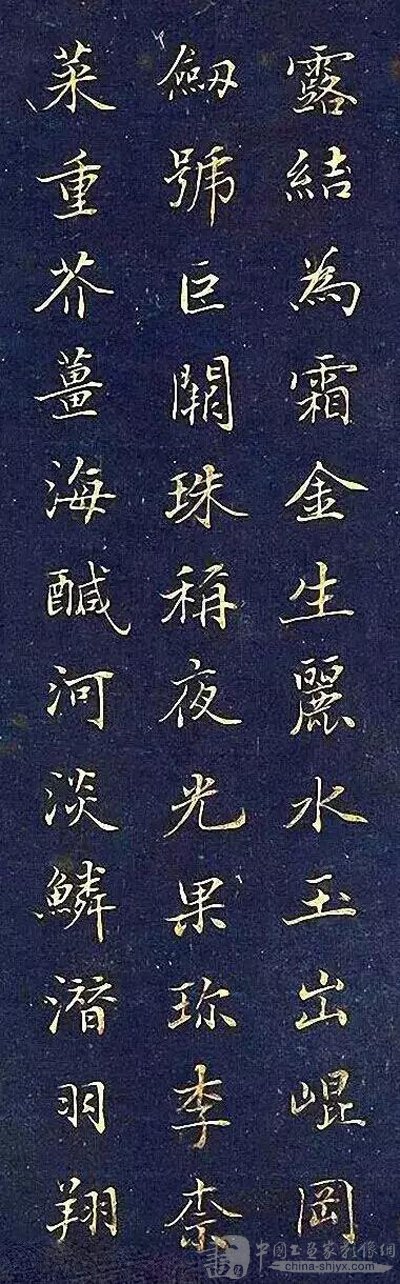 露結為霜金生麗水玉出崐岡
劔號巨闕珠稱夜光果珎李柰
菜重芥薑海醎河淡鱗潛羽翔
中国书画家影像網
china-shiyx.com